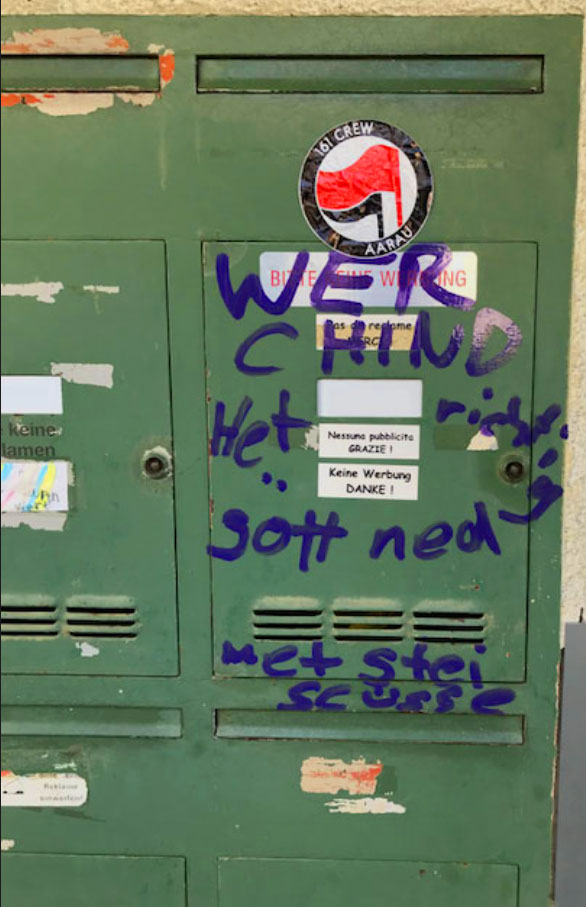 161 CREW
AARAU
BITTE KEINE WERBUNG
WER
Pas de reclame
MERCI
CHIND
Het
Nessuna pubblicita
GRAZIE !
keine
lamen
Keine Werbung
DANKE !
gött ned
met stei
scüsse
Reklame
einwerfen!